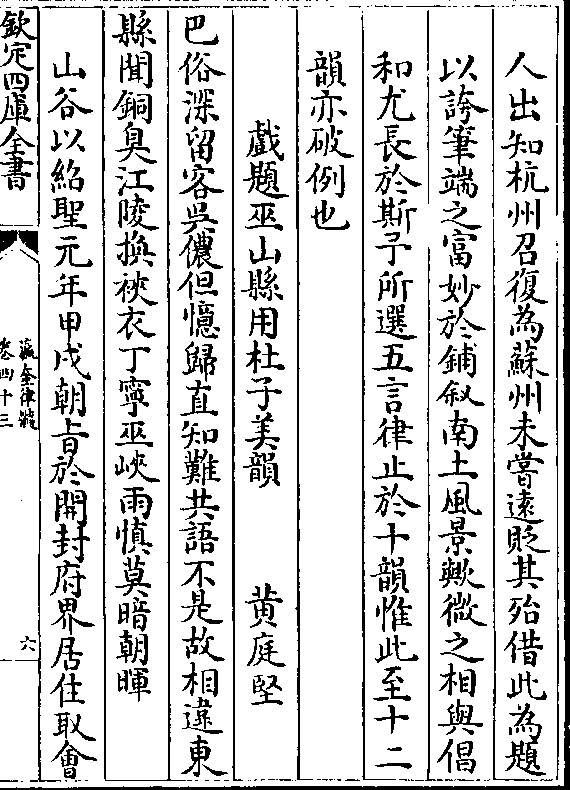 人出知杭州召復為蘇州未嘗遠貶其殆借此為題
以誇筆端之富妙於鋪叙南土風景歟微之相與倡
和尤長於斯予所選五言律止於十韻惟此至十二
韻亦破例也
戲題巫山縣用杜子美韻　黄庭堅
巴俗深留客吳儂但憶歸直知難共語不是故相違東
縣聞銅臭江陵換裌衣丁寧巫峽雨慎莫暗朝暉
山谷以紹聖元年甲戌朝㫖於開封府界居住取會
欽定四庫全書
瀛奎律髓
卷四十三
六